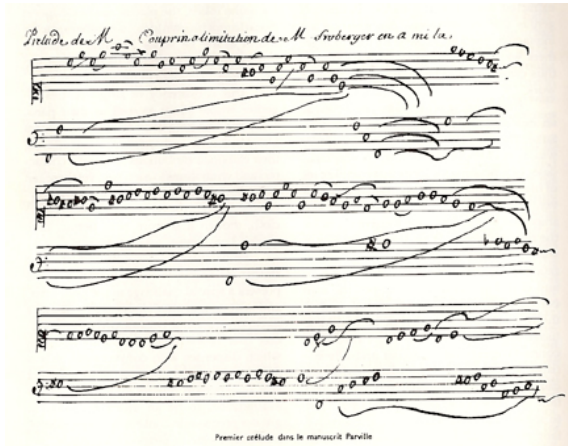 Prelude de M Couprin a limitation de M froberger en a mi la
Premier prélude dans le manuscrit Parville